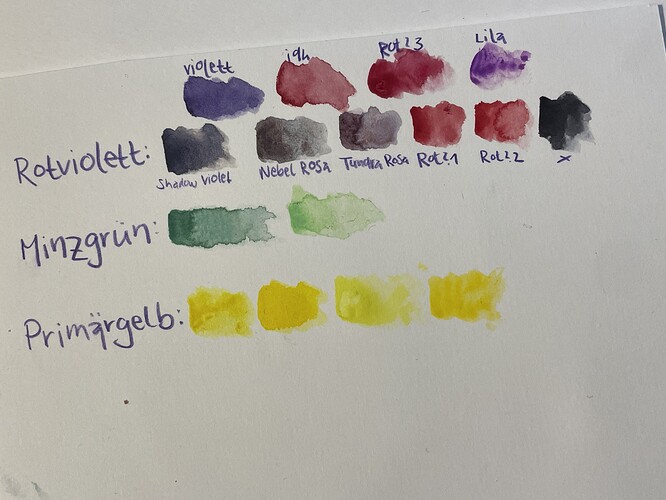 violett igh Rot?3 Lila
Rotviolett:
Shadow Violet Nebel Rosa Tundra Rosa Rot?1 Rot?2 x
Minzgrün:
Primärgelb: